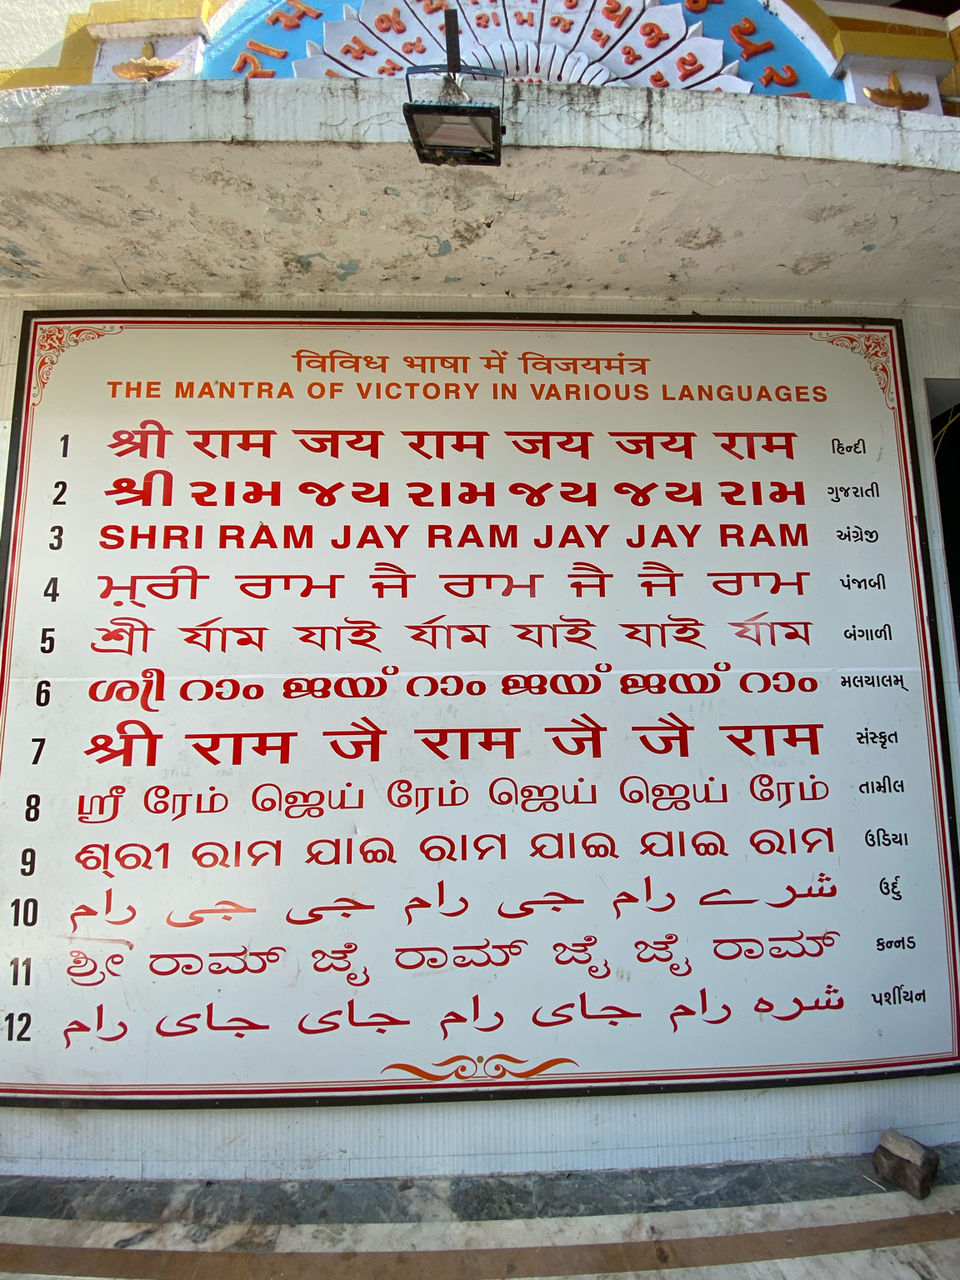 विविध भाषा में विजयमंत्र
THE MANTRA OF VICTORY IN VARIOUS LANGUAGES
1 श्री राम जय राम जय जय राम હિન્દી
2 શ્રી રામ જય રામ જય જય રામ ગુજરાતી
3 SHRI RAM JAY RAM JAY JAY RAM અંગ્રેજી
4 ਸ਼੍ਰੀ ਰਾਮ ਜੈ ਰਾਮ ਜੈ ਜੈ ਰਾਮ પંજાબી
5 শ্রী র্যাম যাই র্যাম যাই যাই র্যাম બંગાળી
6 ശ്രീ റാം ജയ് റാം ജയ് ജയ് റാം મલયાલમ્
7 श्री राम जै राम जै जै राम સંસ્કૃત
8 ஸ்ரீ ரேம் ஜெய் ரேம் ஜெய் ஜெய் ரேம் તામીલ
9 ଶ୍ରୀ ରାମ ଯାଇ ରାମ ଯାଇ ଯାଇ ରାମ ઉડિયા
10 شرے رام جی رام جی جی رام ઉર્દુ
11 ಶ್ರೀ ರಾಮ್ ಜೈ ರಾಮ್ ಜೈ ಜೈ ರಾಮ್ કન્નડ
12 شره رام جای رام جای جای رام પર્શીયન